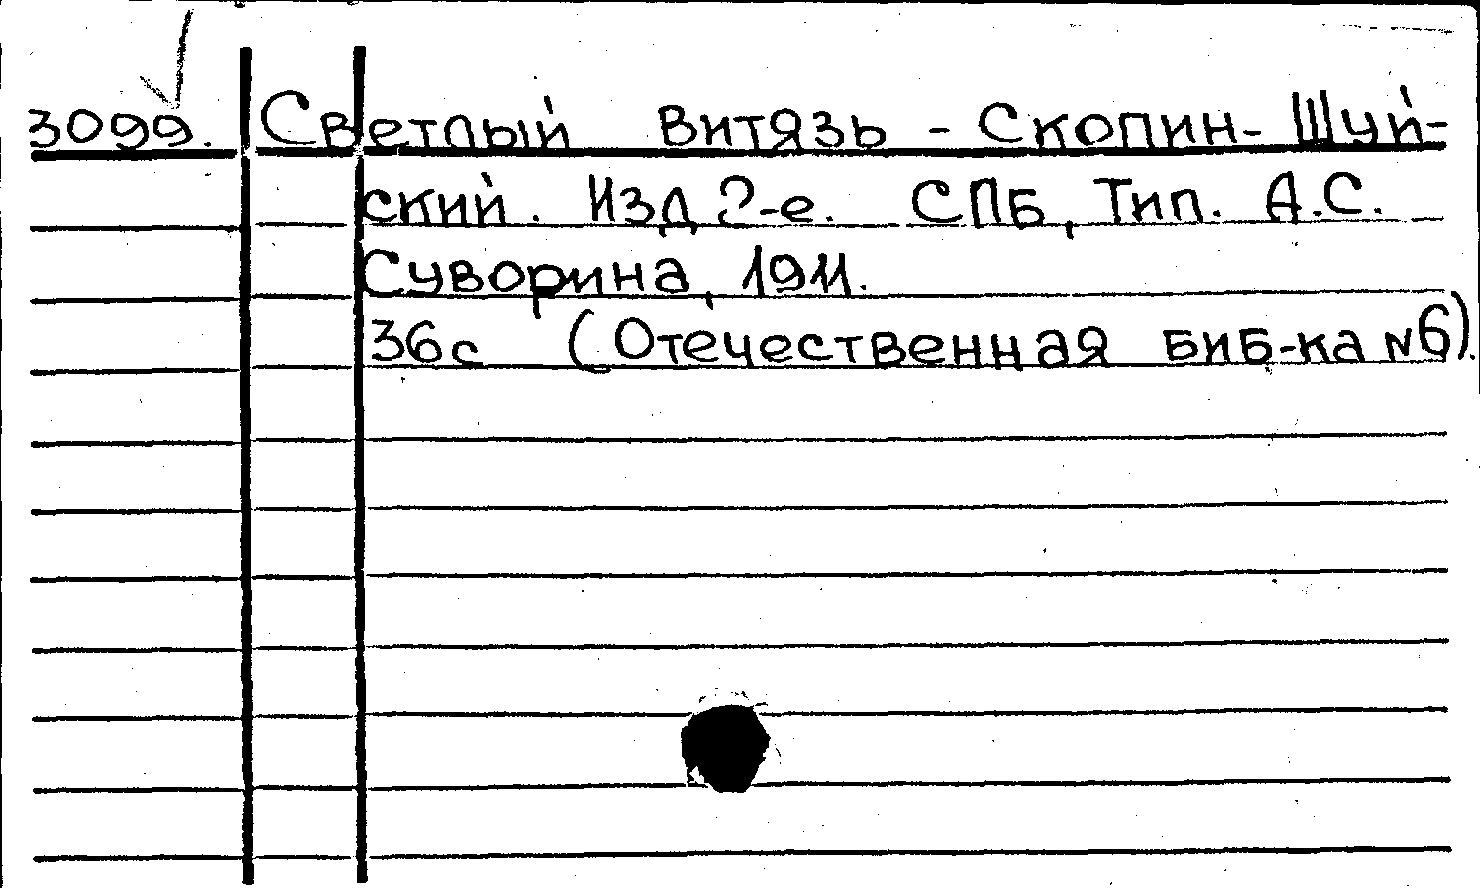 3099. Светлый витязь - Скопин-Шуй-
ский. Изд 2-е. СПБ, Тип. А.С.
Суворина, 1911.
36с (Отечественная биб-ка N6).